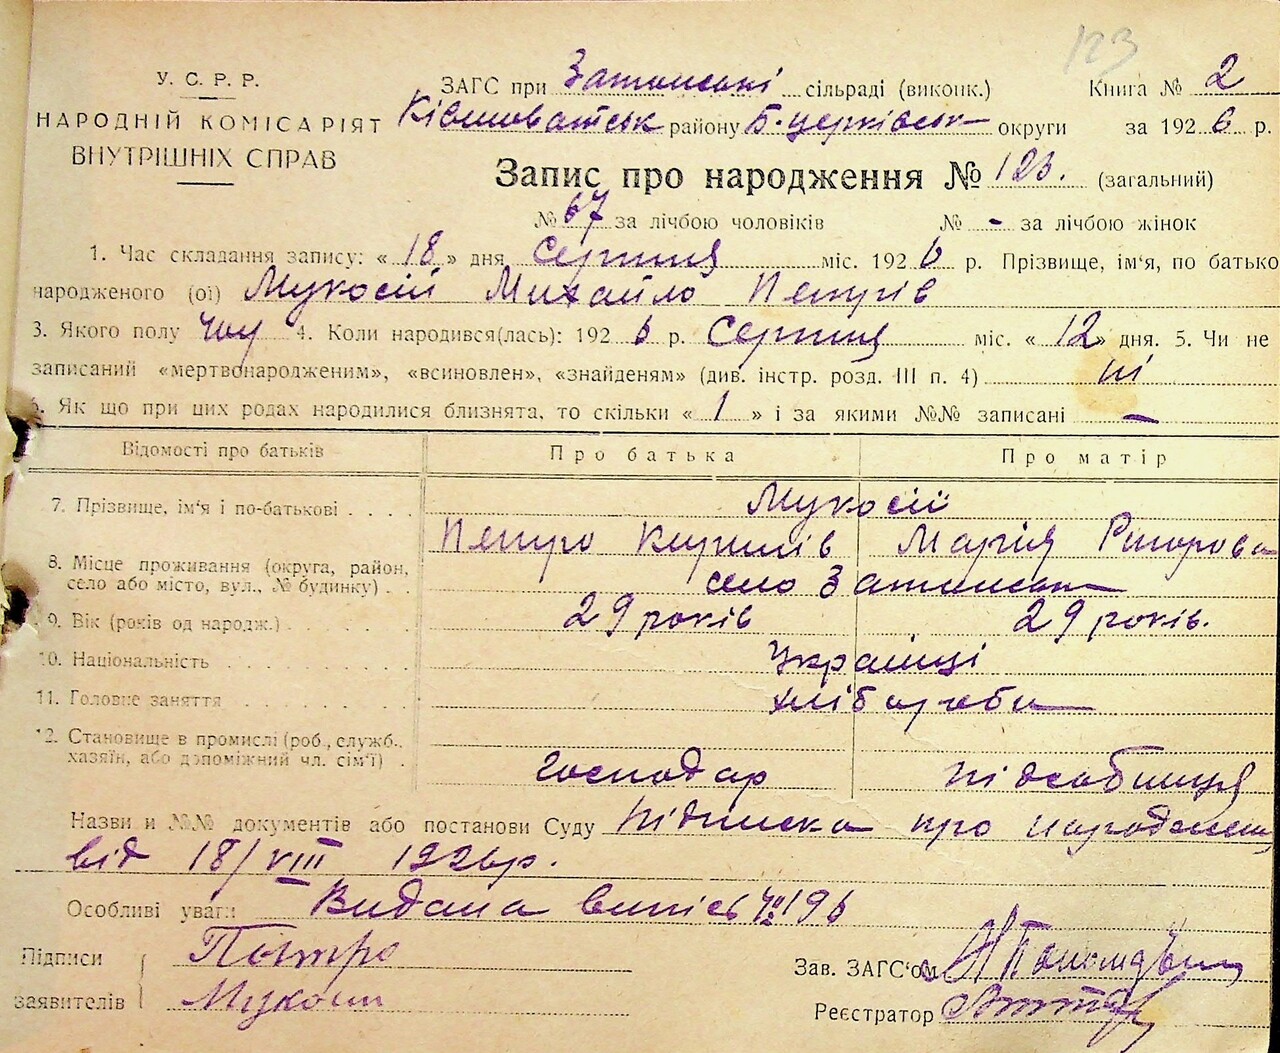 123
У. С. Р. Р.
НАРОДНІЙ КОМІСАРІЯТ
ВНУТРІШНІХ СПРАВ
ЗАГС при сільраді (виконк.) Книга № 2
району Б-церківськ округи за 1926 р.
Запис про народження № 123. (загальний)
№ 67 за лічбою чоловіків № - за лічбою жінок
1. Час складання запису: « 18 » дня Серпня міс. 1926 р. Прізвище, ім'я, по батько
народженого (ої) Мукосій Михайло Петрів
3. Якого полу чол 4. Коли народився(лась): 1926 р. Серпня міс. « 12 » дня. 5. Чи не
записаний «мертвонародженим», «всиновлен», «знайденям» (див. інстр. розд. III п. 4) ні
6. Як що при цих родах народилися близнята, то скільки « 1 » і за якими №№ записані —
Відомості про батьків Про батька Про матір
7. Прізвище, ім'я і по-батькові . . . . Мукосій
Петро Кирилів Марія Григорова
8. Місце проживання (округа, район,
село або місто, вул., № будинку) . . село
9. Вік (років од народж.) . . . . . 29 років 29 років.
10. Національність . . . . . . . Українці
11. Головне заняття . . . . . . хлібороби
12. Становище в промислі (роб., служб.,
хазяїн, або допоміжний чл. сім'ї) . господар підсобниця
Назви и №№ документів або постанови Суду підписка про народження
від 18/VIII 1926р.
Особливі уваги Видана випись № 196
Підписи Петро
заявителів Мукосій
Зав. ЗАГС'ом
Реєстратор